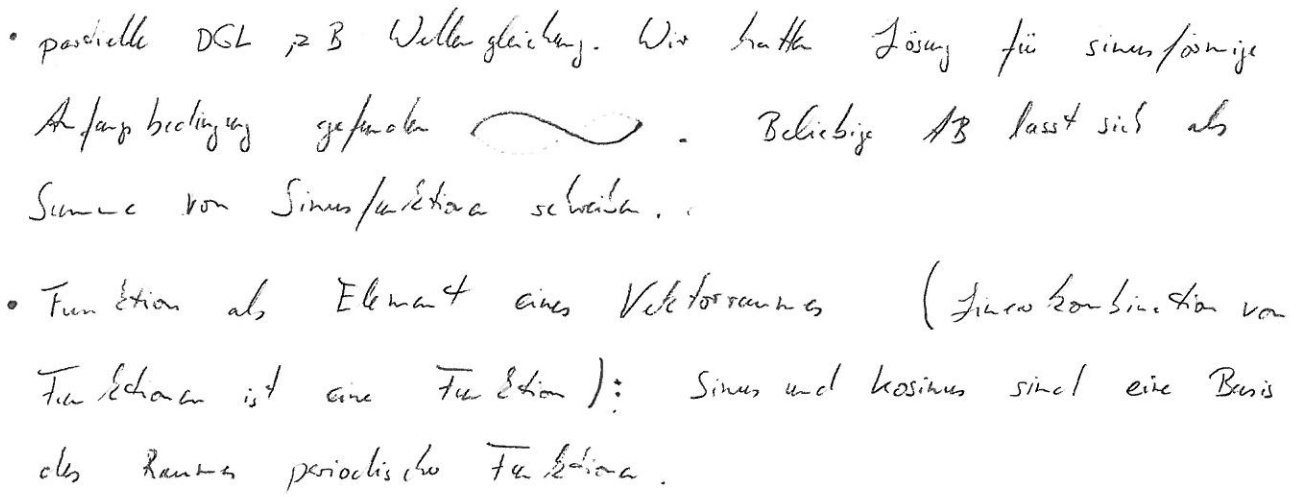 • partielle DGL, z B Wellengleichung. Wir hatten Lösung für sinusförmige
Anfangsbedingung gefunden . Beliebige AB lasst sich als
Summe von Sinusfunktionen schreiben.
• Funktion als Element eines Vektorraumes (Linearkombination von
Funktionen ist eine Funktion): Sinus und Kosinus sind eine Basis
des Raumes periodischer Funktionen.